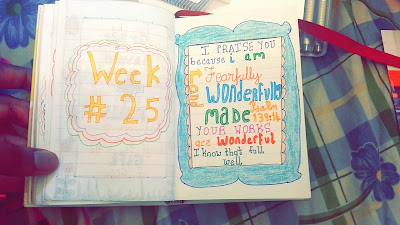 Week
# 25
I PRAISE YOU
because i am
Fearfully
and
WONDERfully
maDe
Psalm
139:14
YOUR WORKS
are WonDerful
I know that full
well